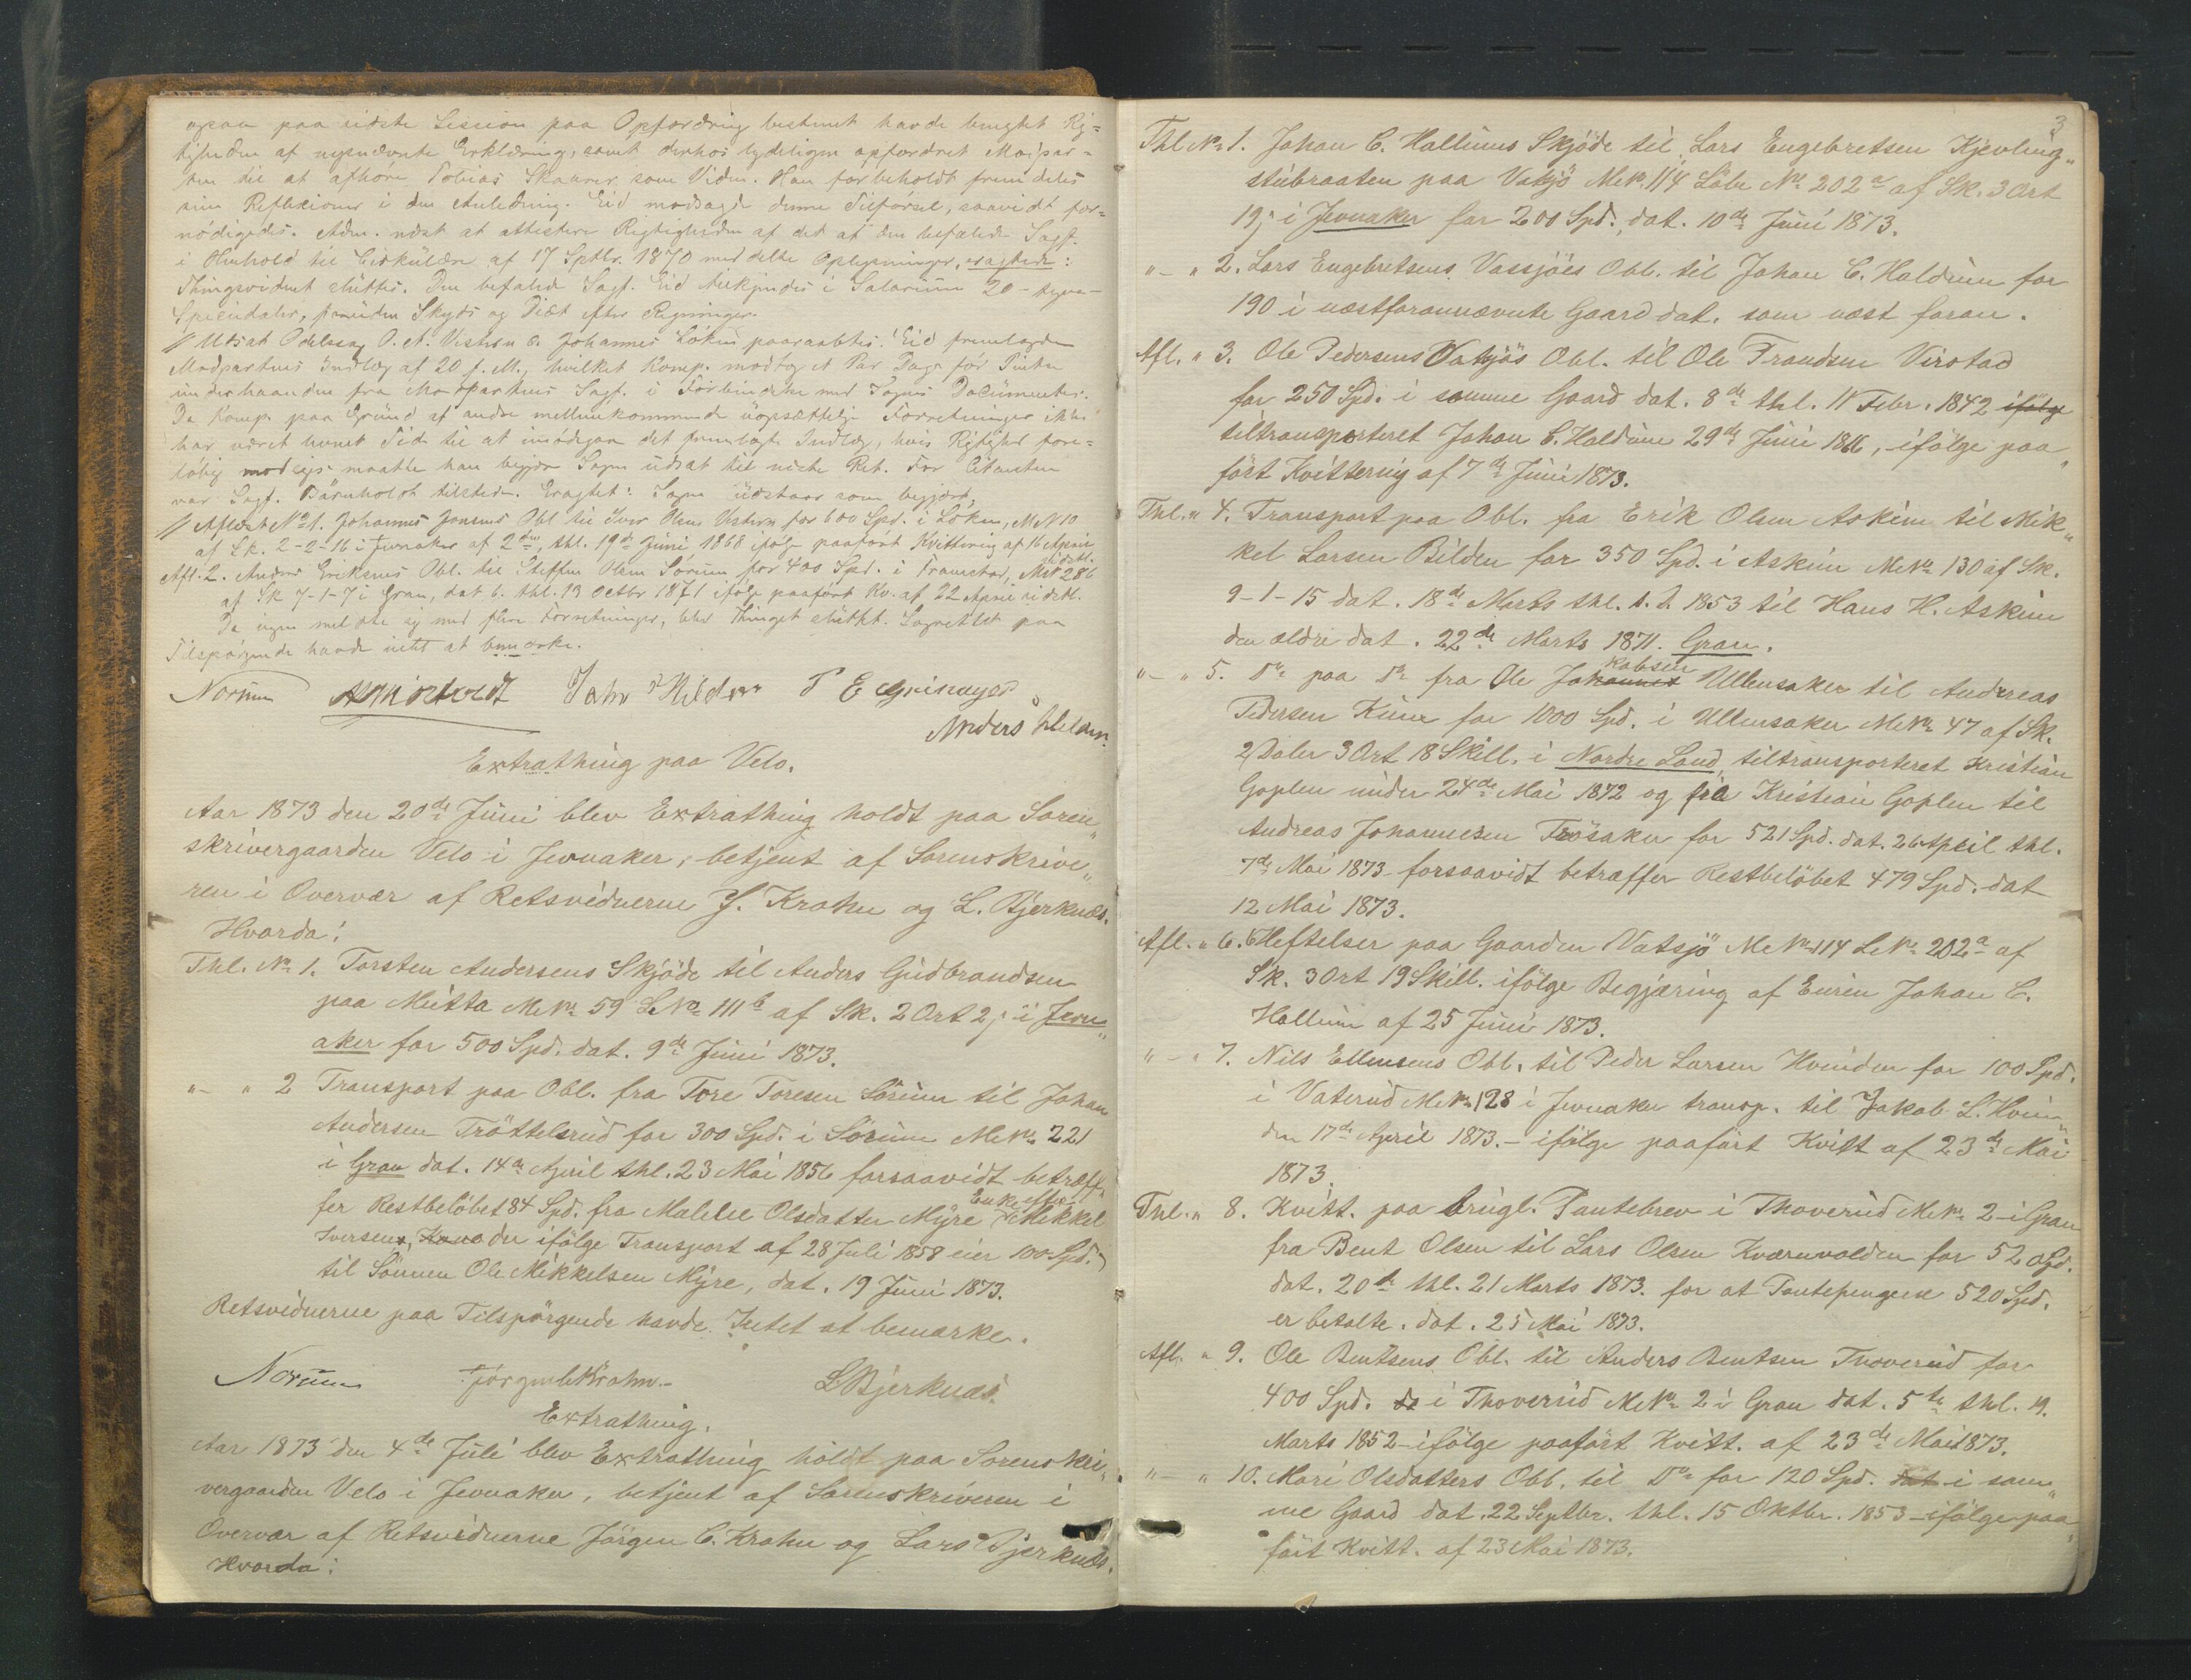 ogsaa paa sidste Session paa Opfordring bestemt havde benegtet Rig=
tigheden af nysnævnte Erklæring, samt derhos tydeligen opfordret Modpar=
ten til at afhøre Tobias Skaarer som Vidne. Han forbeholdt fremdeles
sine Reflexioner i den Anledning. Eid modsagde denne Tilførsel, saavidt for=
nødigedes. Adm. næst at attestere Rigtigheden af det at den befalede Sagf.
i Henhold til Cirkulære af 17 Septbr. 1870 meddelte Oplysninger, eragtede:
Thingsvidnet sluttes. Den befalede Sagf. Eid tilkjendes i Salarium 20 - tyve -
Speciedaler, foruden Skyds og Diæt efter Regninger.
// Udsat Odelssag O. A. Vestern c. Johannes Løken paaraabtes. Eid fremlagde
Modpartens Indlæg af 20 f. M., hvilket Komp. modtog et Par Dage før Tinta
underhaanden fra Modpartens Sagf. i Forbindelse med Sagens Documenter.
Da Komp. paa Grund af andre mellemkommende uopsættelige Forretninger ikke
har været levnet Tid til at imødegaa det fremlagte Indlæg, hvis Rigtighed fore=
løbig modsiges maatte han begjære Sagen udsat til næste Ret. For Citanten
var Sagf. Bärnholdt tilstede. Eragtet: Sagen udstaar som begjært.
// Aflæst No 1. Johannes Jensens Obl til Iver Olsen Vestern for 600 Spd. i Løken, M N 10
af Sk. 2-2-16 i Jevnaker af 2den, thl. 19de Juni 1868 ifølge paaført Kvittering af 16 April
sidstl.
Afl. 2. Anders Eriksens Obl. til Steffen Olsen Sørum for 400 Spd. i Framstad, MN 286
af Sk 7-1-7 i Gran, dat 6. thl. 13 Octbr 1871 ifølge paaført Kv. af 22 April sidstl.
Da ingen meldte sig med flere Forretninger, blev Thinget sluttet. Lagrettet paa
Tilspørgende havde intet at bemærke.
Norum
Anders
Extrathing paa Velo.
Aar 1873 den 20de Juni blev Extrathing holdt paa Soren„
skrivergaarden Velo i Jevnaker, betjent af Sorenskrive„
ren i Overvær af Retsvidnerne J. Krohn og L. Bjerknæs.
Hvorda:
Thl. No 1. Torsten Andersens Skjöde til Anders Gudbrandsen
paa Mutta M.No 59 L.No 111b af Sk. 2 Ort 2 j i Jevn„
aker for 500 Spd. dat. 9de Juni 1873.
„ - „ 2 Transport paa Obl. fra Tore Toresen Sörum til Johan
Andersen Tröttelsrud for 300 Spd. i Sörum M.No 221
i Gran dat. 14de April thl. 23 Mai 1856 forsaavidt betræf„
fer Restbelöbet 84 Spd. fra Malene Olsdatter Myre Enke efter Mikkel
Iversen, Kone der ifölge Transport af 28 Juli 1858 eier 100 Spd.
til Sönnen Ole Mikkelsen Myre, dat. 19 Juni 1873.
Retsvidnerne paa Tilspörgende havde Intet at bemærke.
Norum Jörgen C Krohn. L Bjerknæs.
Extrathing.
Aar 1873 den 4de Juli blev Extrathing holdt paa Sorenskri„
vergaarden Velo i Jevnaker, betjent af Sorenskriveren i
Overvær af Retsvidnerne Jörgen C. Krohn og Lars Bjerknæs.
Hvorda:
3
Thl No 1. Johan C. Hallums Skjöde til Lars Engebretsen Kjevling„
stubraaten paa Vatsjö M.No. 114 Löbe No 202a af Sk. 3 Ort
19 j i Jevnaker for 200 Spd., dat. 10de Juni 1873.
„ - „ 2. Lars Engebretsens Vassjöes Obl. til Johan C. Haldum for
190 i næstforannævnte Gaard dat. som næst foran.
Afl. „ 3. Ole Pedersens Vatsjös Obl. til Ole Frandsen Virstad
for 250 Spd. i samme Gaard dat. 8de thl. 11 Febr. 1842 ifølge
tiltransporteret Johan C. Haldum 29de Juni 1866, ifölge paa„
fört Kvittering af 7de Juni 1873.
Thl. „ 4. Transport paa Obl. fra Erik Olsen Askim til Mik„
kel Larsen Bilden for 350 Spd. i Askim M.No 130 af Sk.
9-1-15 dat. 18de Marts thl. s. D. 1853 til Hans H. Askim
den ældre dat. 22de Marts 1871. Gran.
„ - „ 5. Do paa Do fra Ole Johannes Kobsen Ullensaker til Andreas
Pedersen Kinn for 1000 Spd. i Ullensaker M.No 47 af Sk.
2 Daler 3 Ort 18 Skill. i Nordre Land, tiltransporteret Kristian
Goplen under 24de Mai 1872 og fra Kristian Goplen til
Andreas Johannesen Frösaker for 521 Spd. dat. 26 April thl.
7de Mai 1873 forsaavidt betræffer Restbelöbet 479 Spd. dat
12 Mai 1873.
Afl. „ 6. 6 Heftelser paa Gaarden Vatsjö M.No 114 L.No 202a af
Sk. 3 Ort 19 Skill. ifölge Begjæring af Eieren Johan C.
Hallum af 25 Juni 1873.
„ - „ 7. Nils Ellensens Obl. til Peder Larsen Hvinden for 100 Spd.
i Vaterud M.No. 128 i Jevnaker transp. til Jakob L. Hvin„
den 17de April 1873. - ifölge paafört Kvitt af 23de Mai
1873.
Thl. „ 8. Kvitt. paa brugl. Pantebrev i Thoverud M.No 2 i Gran
fra Bent Olsen til Lars Olsen Kværnvolden for 520 Spd.
dat. 20de thl. 21 Marts 1873. for at Pantepengene 520 Spd.
er betalte. dat. 25 Mai 1873.
Afl. „ 9. Ole Bentsens Obl. til Anders Bentsen Thoverud for
400 Spd. da i Thoverud M.No 2 i Gran dat. 5te thl. 19.
Marts 1852 - ifölge paafört Kvitt. af 23de Mai 1873.
„ - „ 10. Mari Olsdatters Obl. til Do for 120 Spd. dat i sam„
me Gaard dat. 22 Septbr. thl. 15 Oktbr. 1853 - ifölge paa„
fört Kvitt. af 23 Mai 1873.